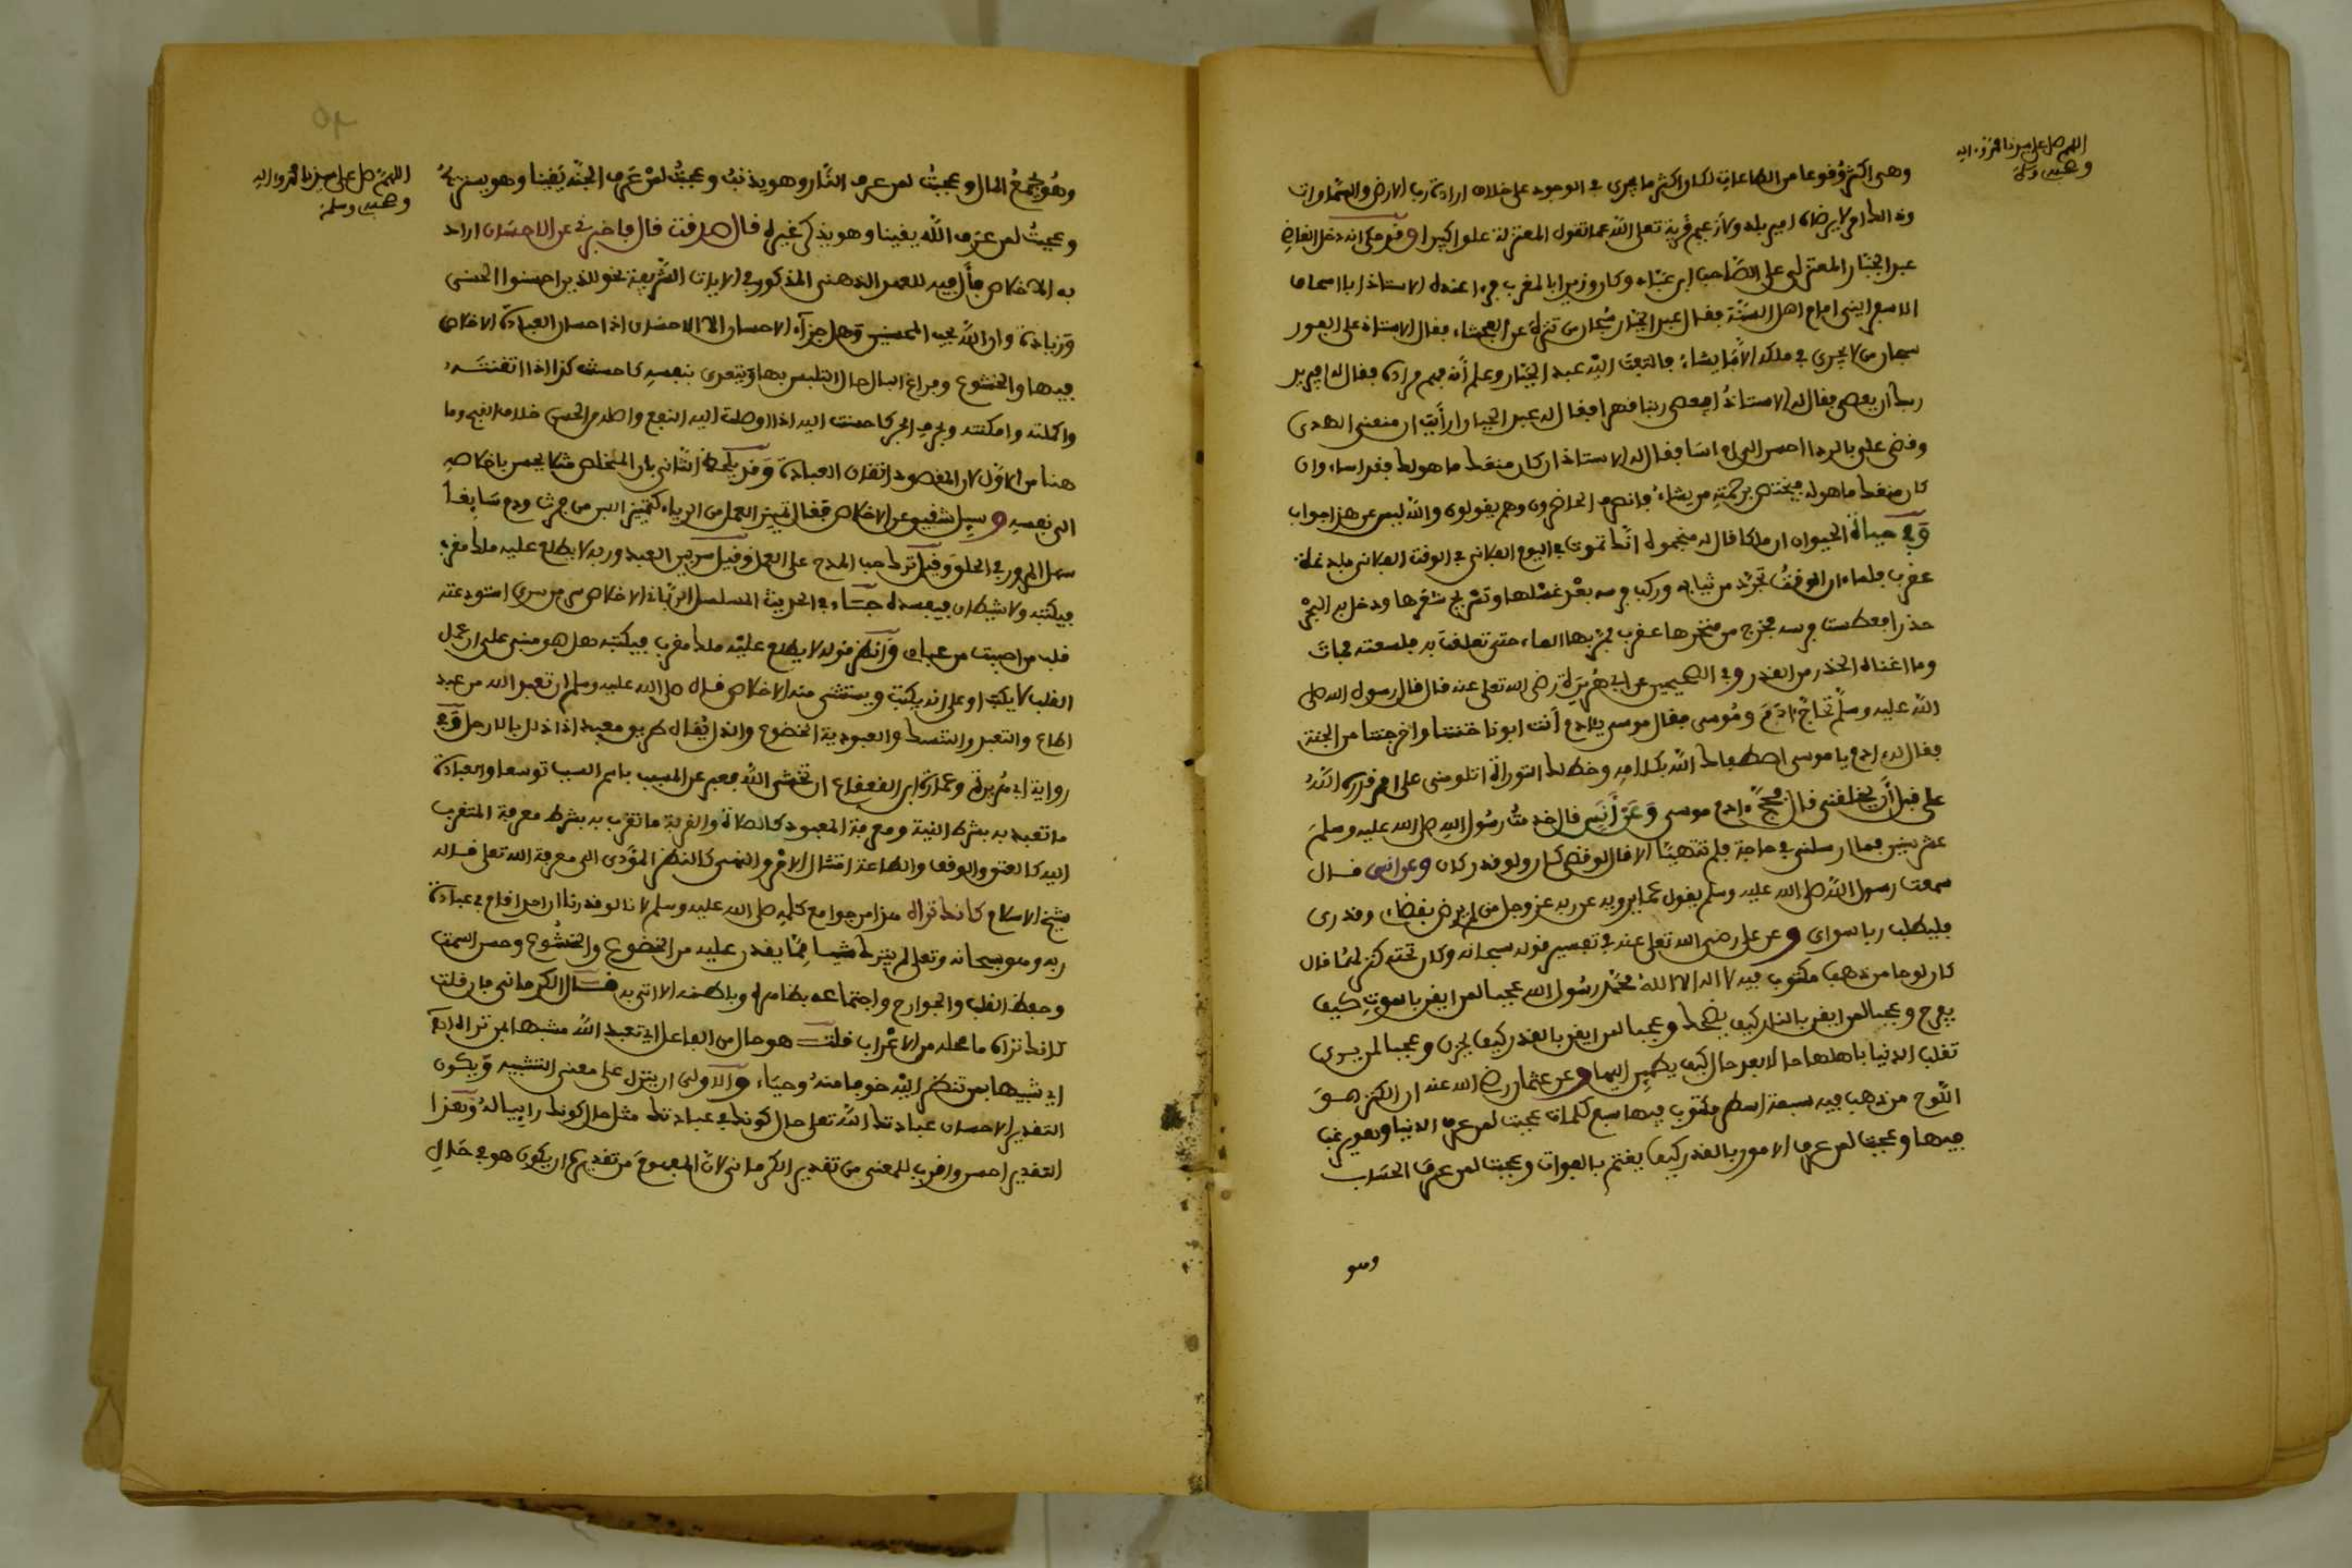 اللهم صل على سيدنا محمد وءاله
وصحبه وسلم
وهي اكثر وقوعا من الطاعات لكان اكثر ما يجري في الوجود على خلاف ارادة رب الارض والسماوات
وذا لا يرضاه امير بلد ولا زعيم قرية تعلى الله عما تقول المعتزلة علوا كبيرا وقد حكي انه دخل القاضي
عبد الجبار المعتزلي على الصاحب ابن عباد وكان وزيرا بالمغرب فرءا عنده الاستاذ ابا اسحاق
الاسفرايني امام اهل السنة فقال عبد الجبار سبحان من تنزه عن الفحشاء فقال الاستاذ على الفور
سبحان من لا يجري في ملكه الا ما يشاء فالتفت اليه عبد الجبار وعلم أنه فهم مراده فقال له ايريد
ربنا ان يعصى فقال له الاستاذ افيعصى ربنا قهرا فقال له عبد الجبار ارأيت ان منعني الهدى
وقضى علي بالردا احسن الي ام اسا فقال له الاستاذ ان كان منعك ما هو لك فقد اساء وان
كان منعك ما هو له فيختص برحمته من يشاء فانصرف الحاضرون وهم يقولون والله ليس عن هذا جواب
وفي حياة الحيوان ان ملكا قال له منجموه انك تموت في اليوم الفلاني في الوقت الفلاني بلدغة
عقرب فلما ءان الوقت تجرد من ثيابه وركب فرسه بعد غسلها وتسريح شعرها ودخل به البحر
حذرا فعطست فرسه فخرج من منخرها عقرب فرمى بها الماء حتى تعلقت به فلسعته فمات
وما اغناه الحذر من القدر وفي الصحيحين عن ابي هريرة رضي الله تعلى عنه قال قال رسول الله صلى
الله عليه وسلم تحاج ءادم وموسى فقال موسى يا ءادم أنت ابونا خنتنا واخرجتنا من الجنة
فقال له ءادم يا موسى اصطفاك الله بكلامه وخط لك التوراة اتلومني على امر قدره الله
علي قبل أن يخلقني قال فحج ءادم موسى وعن أنس قال خدمت رسول الله صلى الله عليه وسلم
عشر سنين فما ارسلني في حاجة فلم تتهيأ الا قال لو قضي كان ولو قدر كان وعن انس قال
سمعت رسول الله صلى الله عليه وسلم يقول فيما يرويه عن ربه عز وجل من لم يرض بقضاء وقدري
فليطلب ربا سواي وعن علي رضي الله تعلى عنه في تفسير قوله سبحانه وكان تحته كنز لهما قال
كان لوحا من ذهب مكتوب فيه لا اله الا الله محمد رسول الله عجبا لمن ايقن بالموت كيف
يفرح وعجبا لمن ايقن بالنار كيف يضحك وعجبا لمن ايقن بالقدر كيف يحزن وعجبا لمن يرى
تقلب الدنيا باهلها حالا بعد حال كيف يطمئن اليها وعن عثمان رضي الله عنه ان الكنز هو
اللوح من ذهب فيه سبعة اسطر مكتوب فيها سبع كلمات عجبت لمن عرف الدنيا وهو يرغب
فيها وعجبت لمن عرف الامور بالقدر كيف يغتم بالفوات وعجبت لمن عرف الحساب
وهو
اللهم صل على سيدنا محمد وءاله
وصحبه وسلم
وهو يجمع المال وعجبت لمن عرف النار وهو يذنب وعجبت لمن عرف الجنة يقينا وهو يستريح
وعجبت لمن عرف الله يقينا وهو يذكر غيره قال صدقت قال فاخبرني عن الاحسان اراد
به الاخلاص فأل فيه للعهد الذهني المذكور في الايات الشريفة نحو للذين احسنوا الحسنى
وزيادة وان الله يحب المحسنين وهل جزاء الاحسان الا الاحسان اذ احسان العبادة الاخلاص
فيها والخشوع وفراغ البال حال التلبس بها ويتعدى بنفسه كاحسنت كذا اذا اتقنته
واكملته وامكنته وبحرف الجر كاحسنت اليه اذا اوصلت اليه النفع واصله من الحسن خلاف القبح وما
هنا من الاول لان المقصود اتقان العبادة وقد يلحظ الثاني بان المخلص مثلا يحسن باخلاصه
الى نفسه وسئل شقيق عن الاخلاص فقال تمييز العمل من الرياء كتمييز اللبن من فرث ودم سايغا
سهل المرور في الحلق وقيل ترك حب المدح على العمل وقيل سر بين العبد وربه لا يطلع عليه ملك مقرب
فيكتبه ولا شيطان فيفسده جاء في الحديث المسلسل الرباني الاخلاص سر من سري استودعته
قلب من احببت من عبادي وانظر قوله لا يطلع عليه ملك مقرب فيكتبه هل هو مبني على ان عمل
القلب لا يكتب او على انه يكتب ويستثنى منه الاخلاص قال صلى الله عليه وسلم ان تعبد الله من عبد
اطاع والتعبد والتنسك والعبودية الخضوع والذل يقال طريق معبد اذا ذلل بالارجل وفي
رواية ابي هريرة وعمارة ابن القعقاع ان تخشى الله فعبر عن المسبب باسم السبب توسعا والعبادة
ما تعبد به بشرط النية ومعرفة المعبود كالصلاة والقربة ما تقرب به بشرط معرفة المتقرب
اليه كالعتق والوقف والطاعة امتثال الامر والنهي كالنظر المؤدي الى معرفة الله تعلى قاله
شيخ الاسلام كانك تراه هذا من جوامع كلمه صلى الله عليه وسلم لانا لو قدرنا ان احدا قام في عبادة
ربه وهو سبحانه وتعلى لم يترك شيئا مما يقدر عليه من الخضوع والخشوع وحسن السمت
وحفظ القلب والجوارح واجتماعه بظاهره وباطنه الا اتى به قال الكرماني فان قلت
كانك تراه ما محله من الاعراب قلت هو حال من الفاعل اي تعبد الله مشبها بمن تراه اي
اي شبيها بمن تنظر اليه خوفا منه وحياء والاولى ان ينزل على معنى التشبيه ويكون
التقدير الاحسان عبادتك الله تعلى حال كونك في عبادتك مثل حال كونك رائيا له وهذا
التقدير احسن واقرب للمعنى من تقدير الكرماني لان المفهوم من تقديره ان يكون هو في حال